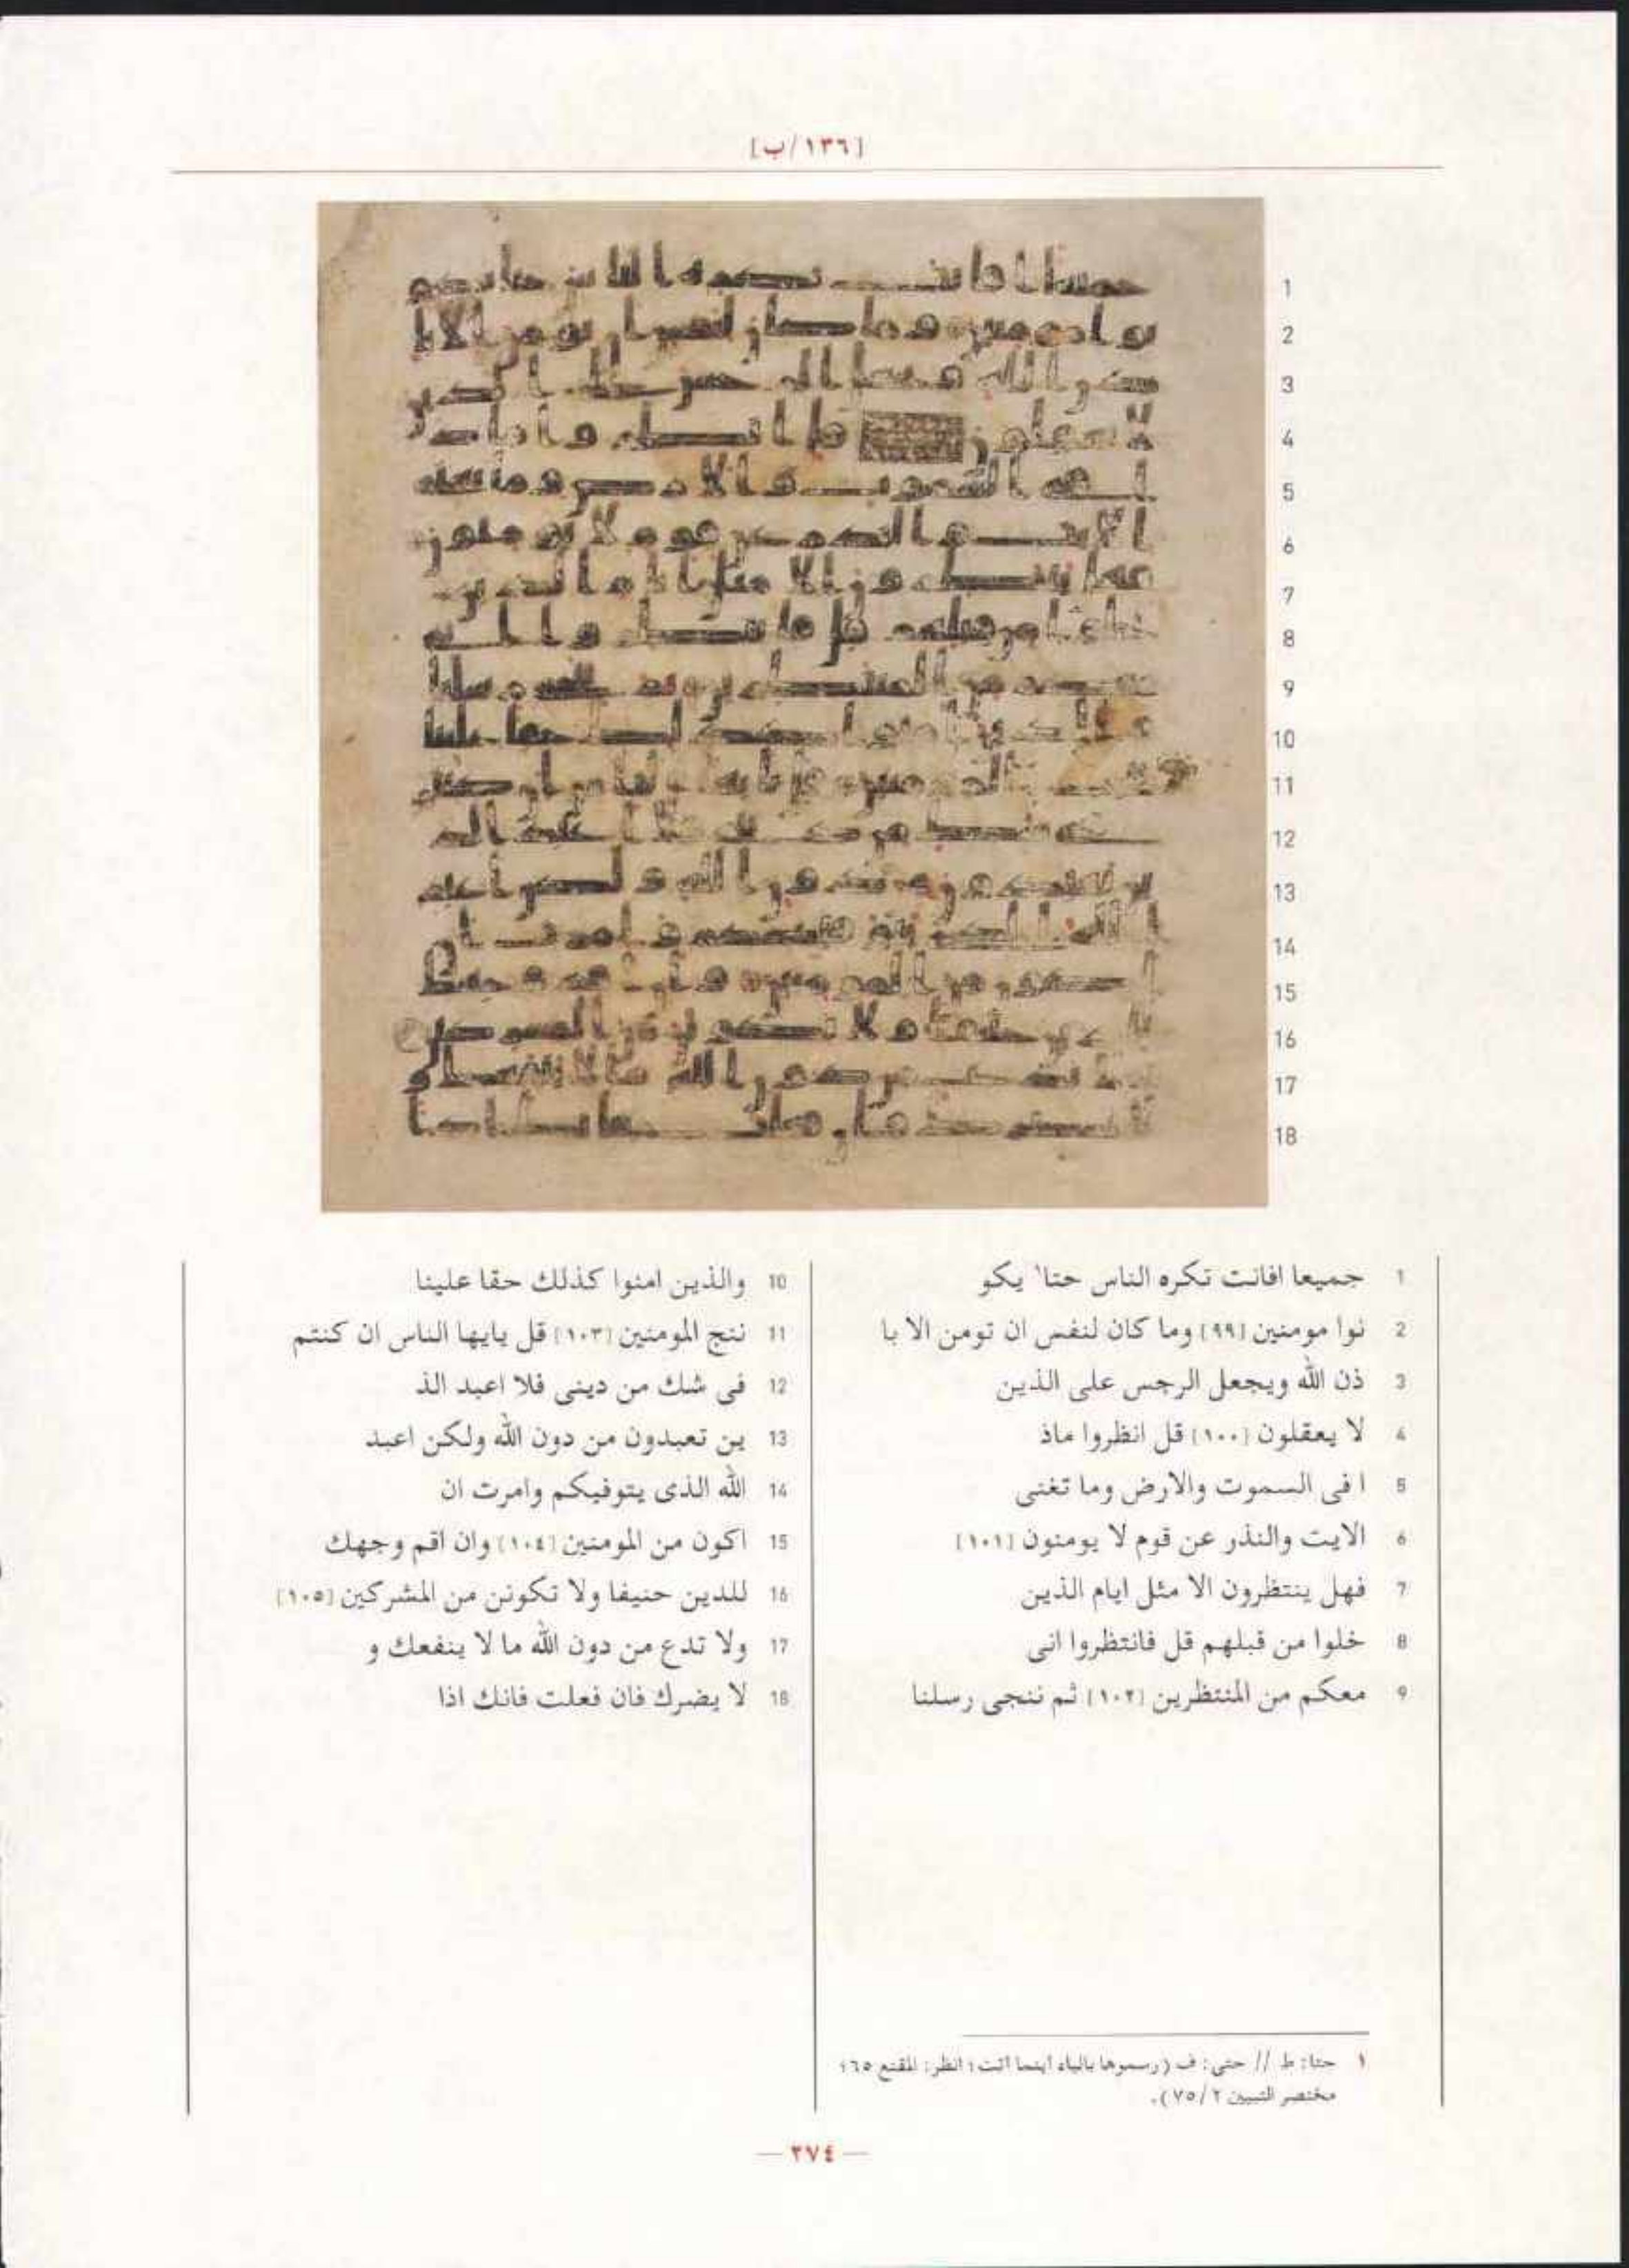 [١٣٦/ب]
1 جميعا افانت تكره الناس حتا١ يكو
2 نوا مومنين [٩٩] وما كان لنفس ان تومن الا با
3 ذن الله ويجعل الرجس على الذين
4 لا يعقلون [١٠٠] قل انظروا ماذ
5 ا فى السموت والارض وما تغنى
6 الايت والنذر عن قوم لا يومنون [١٠١]
7 فهل ينتظرون الا مثل ايام الذين
8 خلوا من قبلهم قل فانتظروا انى
9 معكم من المنتظرين [١٠٢] ثم ننجى رسلنا
10 والذين امنوا كذلك حقا علينا
11 ننج المومنين [١٠٣] قل يايها الناس ان كنتم
12 فى شك من دينى فلا اعبد الذ
13 ين تعبدون من دون الله ولكن اعبد
14 الله الذى يتوفيكم وامرت ان
15 اكون من المومنين [١٠٤] وان اقم وجهك
16 للدين حنيفا ولا تكونن من المشركين [١٠٥]
17 ولا تدع من دون الله ما لا ينفعك و
18 لا يضرك فان فعلت فانك اذا
١ حتا: ط // حتى: ف (رسموها بالياء أينما أتت؛ انظر: المقنع ٦٥؛
مختصر التبيين ٢/ ٧٥).
— ٢٧٤ —